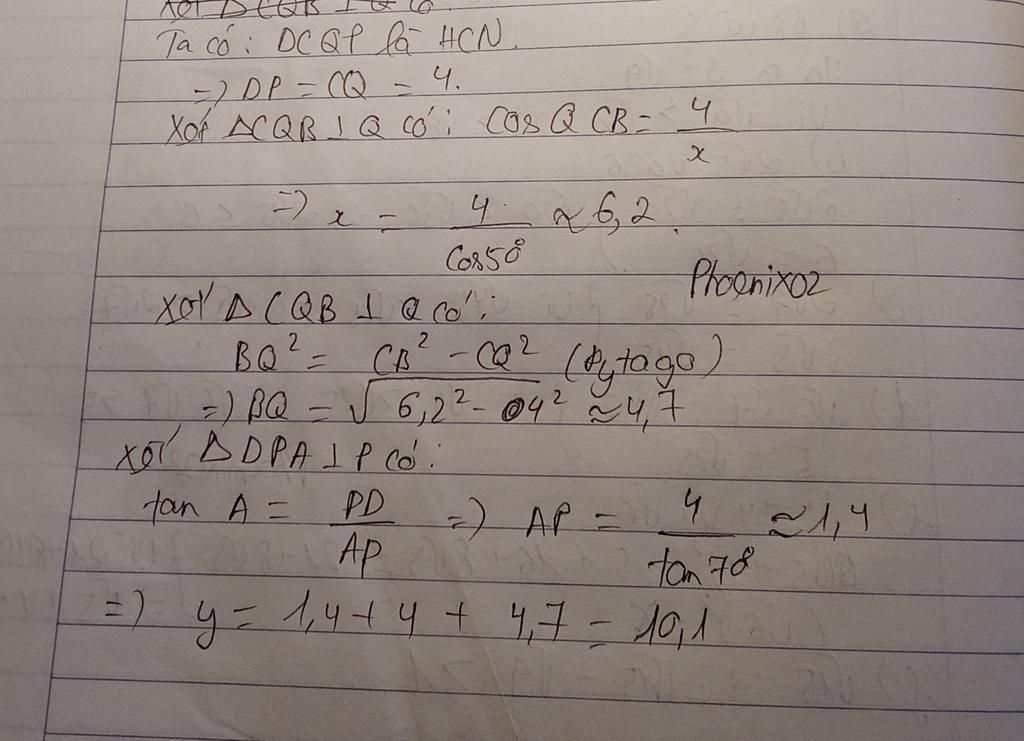 Ta có: DCQP là HCN.
=> DP = CQ = 4.
Xét ΔCQB ⊥ Q có: cos QCB = 4/x
=> x = 4/cos50° ≈ 6,2.
Phoenix02
Xét ΔCQB ⊥ Q có:
BQ² = CB² - CQ² (Pytago)
=> BQ = √(6,2² - 4²) ≈ 4,7
Xét ΔDPA ⊥ P có:
tan A = PD/AP => AP = 4/tan70° ≈ 1,4
=> y = 1,4 + 4 + 4,7 = 10,1